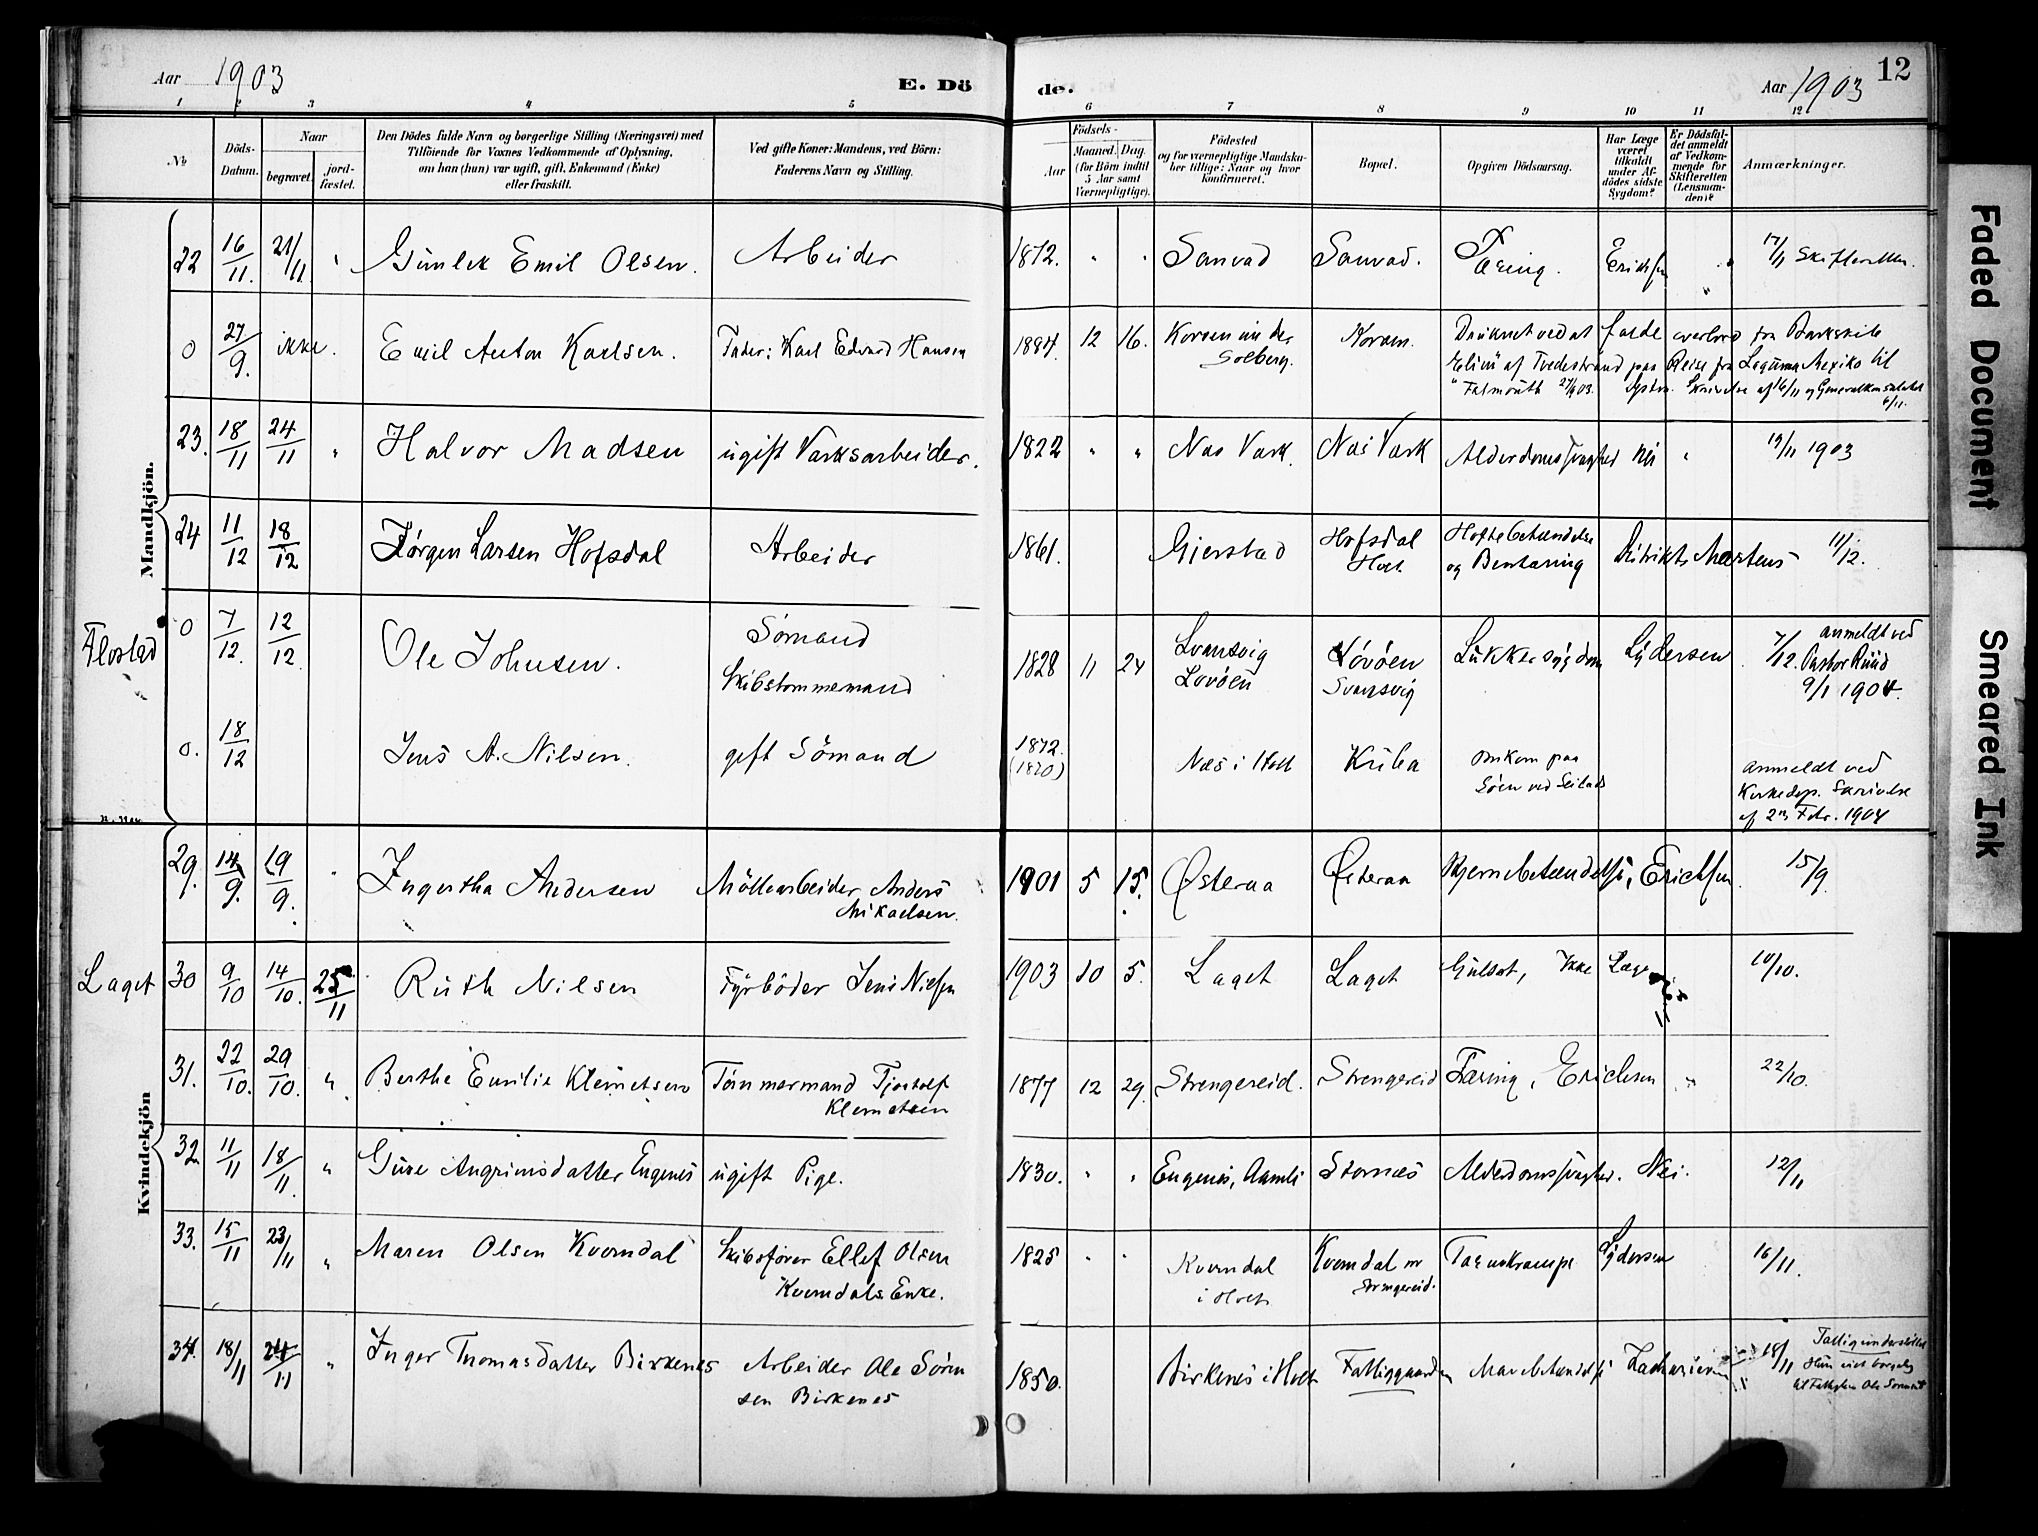 Aar 1903 E. Dö
de. Aar 1903 12
1 2 3 4 5 6 7 8 9 10 11 12
No
Döds-Datum.
Naar begravet. jordfæstet.
Den Dödes fulde Navn og borgerlige Stilling (Næringsvei) med
Tilföiende for Voxnes Vedkommende af Oplysning,
om han (hun) var ugift, gift, Enkemand (Enke)
eller fraskilt.
Ved gifte Koner: Mandens, ved Börn:
Faderens Navn og Stilling.
Födsels-
Aar Maaned. Dag.
(for Börn indtil 5 Aar samt Værnepligtige).
Födested
og for værnepligtige Mandska-
ber tillige: Naar og hvor
konfirmeret.
Bopæl.
Opgiven Dödsaarsag.
Har Læge været tilkaldt under Afdödes sidste Sygdom?
Er Dödsfaldet anmeldt af Vedkommende for Skifteretten (Lensmanden)?
Anmærkninger.
Mandkjön.
22 16/11 21/11 " Gunlek Emil Olsen. Arbeider 1872. " " Sanvad Sanvad. Tæring. Erichsen " 17/11 Skifteretten.
0 27/9. ikke. Emil Anton Karlsen. Fader: Karl Edvard Hansen 1884. 12 16. Korsen under Solberg. Korsen. Druknet ved at falde overbord fra Barkskib
af Tvedestrand paa Reise fra Laguna Mexiko til
Falmouth 27/9 03. Skrivelse af 16/11 og Generalkonsulatet 6/11.
23. 18/11 24/11 " Halvor Madsen ugift Værksarbeider. 1822 " " Næs Værk. Næs Værk Alderdomssvaghed Nei " 19/11 1903
24 11/12 18/12 Jørgen Larsen Hofsdal Arbeider 1861. Gjerstad Hofsdal Holt Hoftebetændelse og Bentæring Distriktsl. Martens 11/12.
Flosta
0 7/12. 12/12. Ole Johnsen. Sømand Skibstømmermand 1828 11 24 Svansvig Lovøen Lovøen Svansvig Sukkersygdom Lydersen 7/12. anmeldt ved Pastor Ruud 9/1 1904.
0. 18/12 Jens A. Nilsen. gift Sömand 1872. (1870) Næs i Holt Kuba Omkom paa Søen ved Seilads Anmeldt ved Kirkedep. Skrivelse af 2den Febr. 1904
Kvindekjön
29. 14/9. 19/9. " Ingertha Andersen Möllearbeider Anders Mikaelsen. 1901 5 15. Østeraa Østeraa Hjernebetændelse, Erichsen. 15/9.
Laget
30 9/10 14/10. 25/11 Ruth Nilsen Fyrböder Jens Nielsen 1903 10 5. Laget Laget Gulsot, Ikke Læge 10/10.
31. 22/10. 29/10. " Berthe Emilie Klemetsen Tömmermand Tjostolf Klemetsen 1877 12 29. Strengereid. Strengereid Tæring, Erichsen " 22/10.
32. 11/11 18/11. " Gure Angrimsdatter Eugenes ugift Pige. 1830. " " Eugenes, Aamli Stornæs Alderdomssvaghed. Nei. 12/11
33. 15/11 23/11 " Maren Olsen Kverndal Skibsfører Ellef Olsen Kverndals Enke. 1825 " " Kverndal i Holt Kverndal nr Strengereid. Tarmkrampe Lydersen 16/11.
34. 18/11 24/11 " Inger Thomasdatter Birkenes Arbeider Ole Sörensen Birkenes 1850. Birkenes i Holt Fattiggaarden Mavebetændelse Zachariesen 18/11 Fattigunderstöttet
Faded Document
Smeared Ink